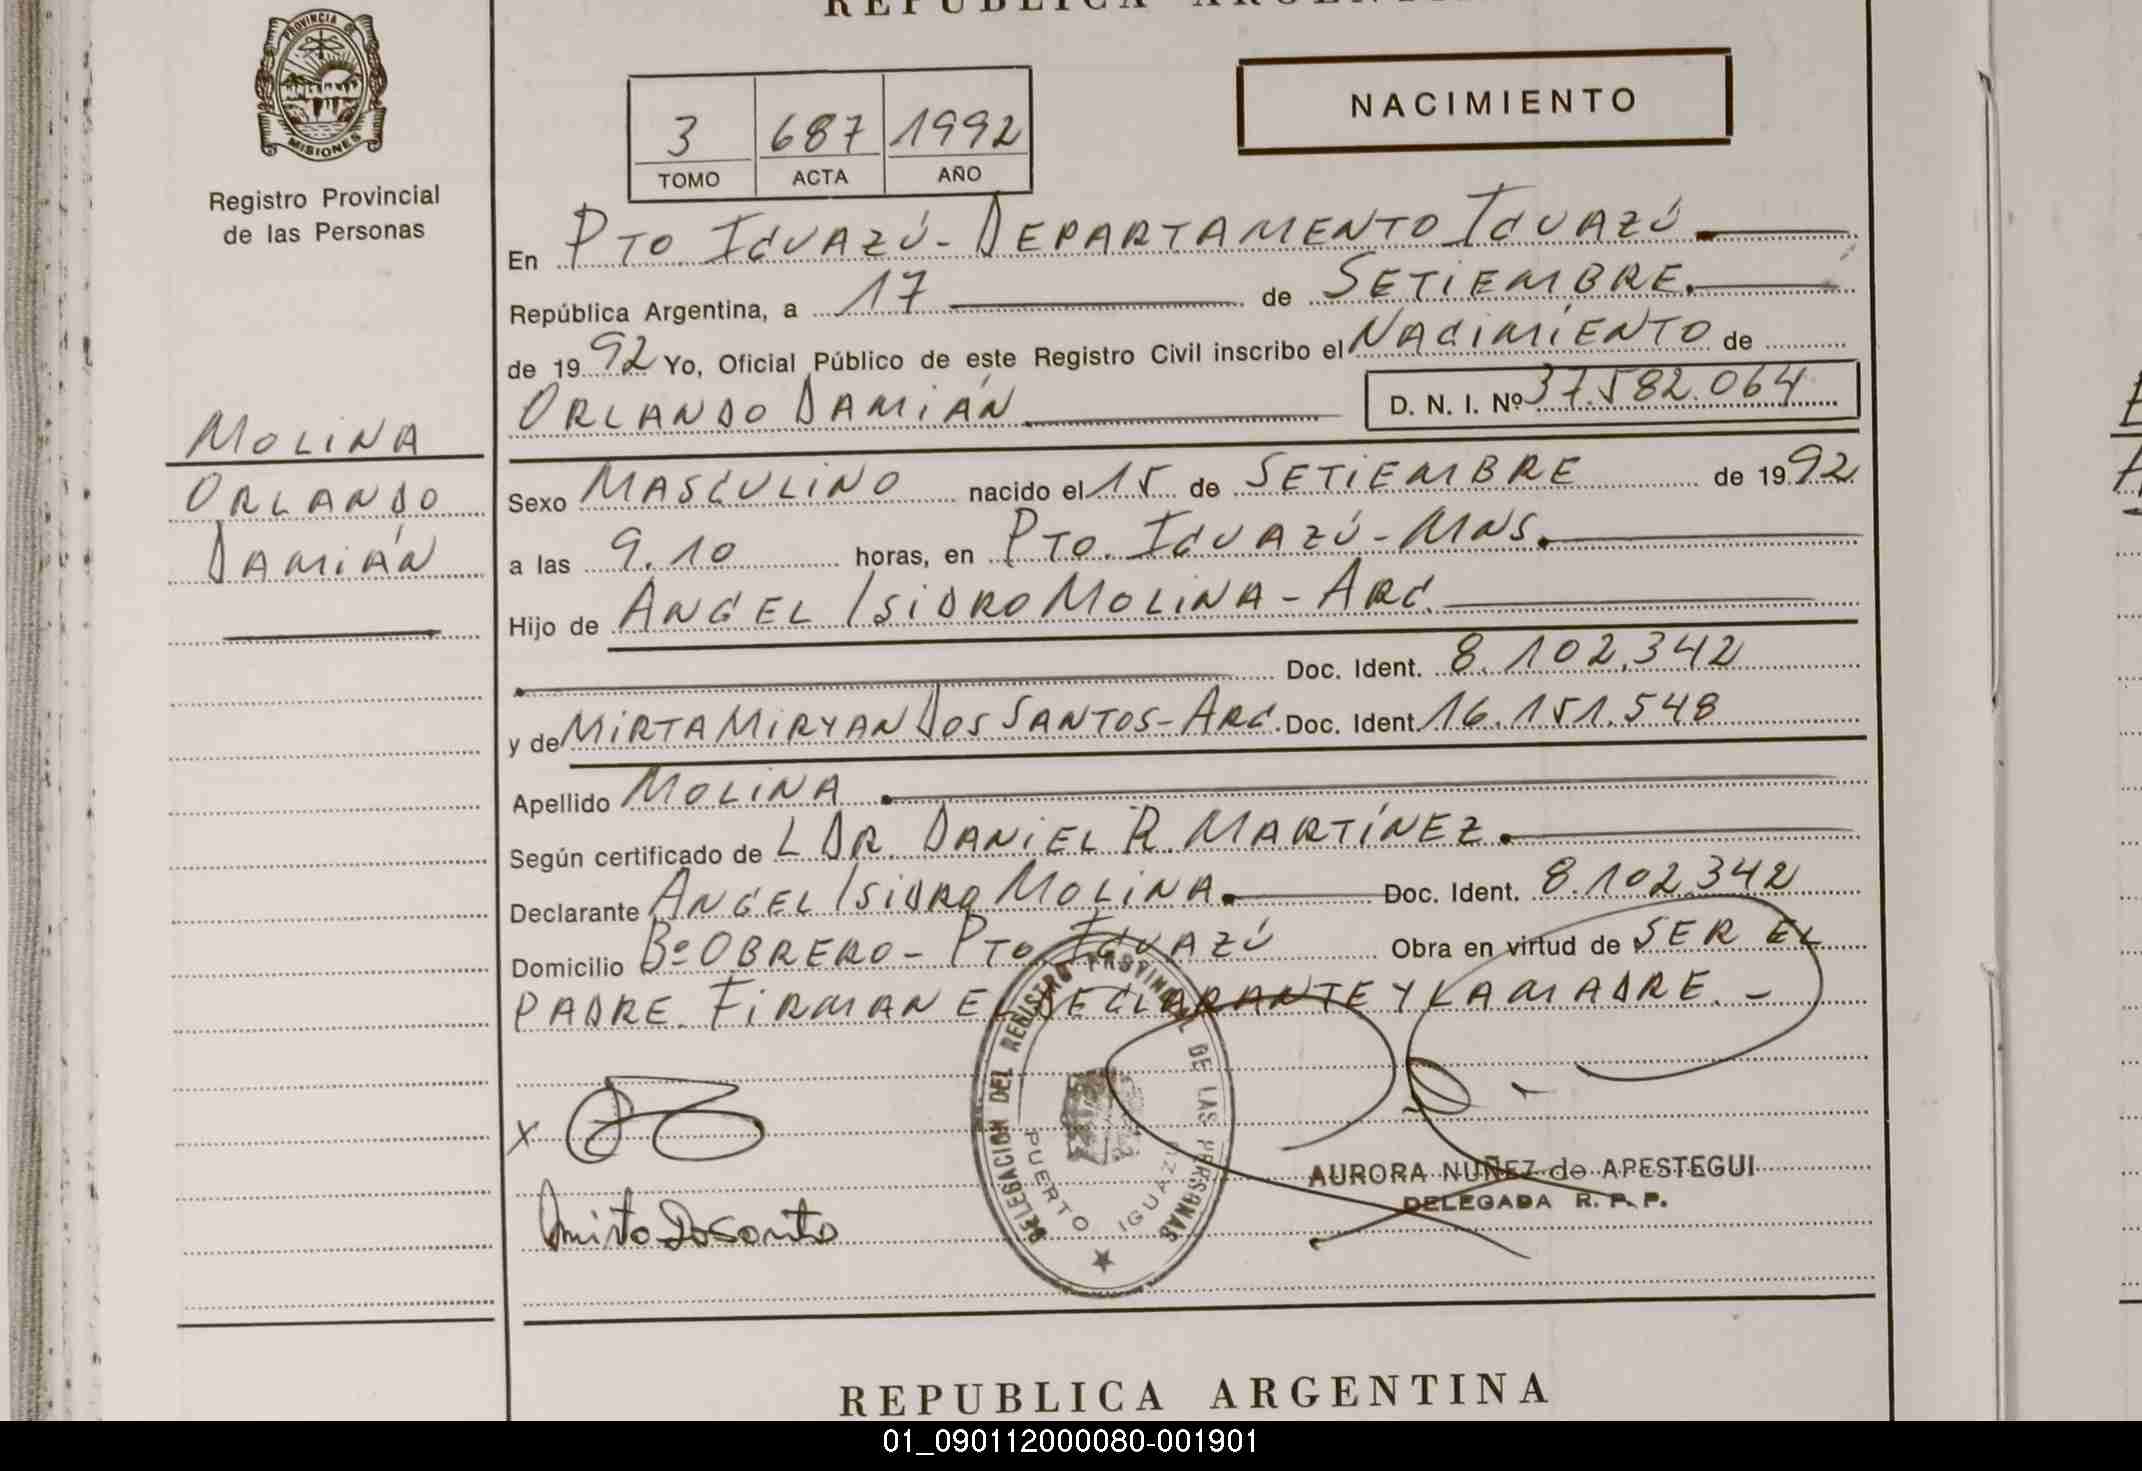 REPUBLICA ARGENTINA
PROVINCIA DE MISIONES
Registro Provincial
de las Personas
3 687 1992
TOMO ACTA AÑO
NACIMIENTO
En PTO IGUAZÚ - DEPARTAMENTO IGUAZÚ
República Argentina, a 17 de SETIEMBRE.
de 1992 Yo, Oficial Público de este Registro Civil inscribo el NACIMIENTO de
ORLANDO DAMIÁN D. N. I. Nº 37.582.064
MOLINA
ORLANDO
DAMIÁN
Sexo MASCULINO nacido el 15 de SETIEMBRE de 1992
a las 9.10 horas, en PTO. IGUAZÚ - MNS.
Hijo de ANGEL ISIDRO MOLINA - ARG.
Doc. Ident. 8.102.342
y de MIRTA MIRYAN DOS SANTOS - ARG. Doc. Ident. 16.151.548
Apellido MOLINA
Según certificado de L DR. DANIEL R. MARTÍNEZ.
Declarante ANGEL ISIDRO MOLINA. Doc. Ident. 8.102.342
Domicilio Bº OBRERO - PTO IGUAZÚ Obra en virtud de SER EL
PADRE. FIRMAN EL DECLARANTE Y LA MADRE. -
DELEGACION DEL REGISTRO PROVINCIAL DE LAS PERSONAS
PUERTO IGUAZU
X
AURORA NUÑEZ de APESTEGUI
DELEGADA R. P. P.
REPUBLICA ARGENTINA
01_090112000080-001901